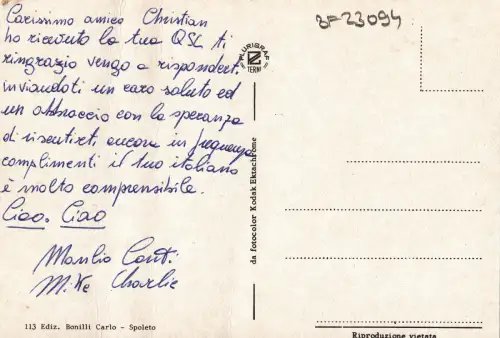 Carissimo amico Christian
ho ricevuto la tua QSL ti
ringrazio vengo a risponderti
inviandoti un caro saluto ed
un abbraccio con la speranza
di risentirti ancora in frequenza
complimenti il tuo italiano
è molto comprensibile.
Ciao. Ciao
Manlio Conti
Mike Charlie
113 Ediz. Bonilli Carlo - Spoleto
PLURIGRAF
TERNI
da fotocolor Kodak Ektachrome
3F-23094
Riproduzione vietata